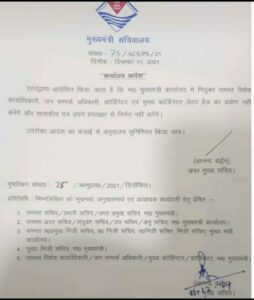 मुख्यमंत्री सचिवालय
संख्या : 75 /ACS/PS/21
दिनांक : दिसम्बर 11, 2021
"कार्यालय आदेश"
एतद्द्वारा आदेशित किया जाता है कि मा० मुख्यमंत्री कार्यालय में नियुक्त समस्त विशेष
कार्याधिकारी, जन सम्पर्क अधिकारी, कोर्डिनेटर एवं मुख्य कोर्डिनेटर लेटर हैड का प्रयोग नहीं
करेंगे और शासकीय पत्र अपने हस्ताक्षर से निर्गत नहीं करेंगे।
उपरोक्त आदेश का कड़ाई से अनुपालन सुनिश्चित किया जाय।
(आनन्द बर्द्धन)
अपर मुख्य सचिव।
पृष्ठांकन संख्या 75 /अ०मु०स०/2021/दिनांकित।
प्रतिलिपि : निम्नलिखित को सूचनार्थ, अनुपालनार्थ एवं आवश्यक कार्यवाही हेतु प्रेषित -
1 समस्त सचिव/प्रभारी सचिव/अपर प्रमुख सचिव, मा० मुख्यमंत्री।
2 समस्त अपर सचिव/संयुक्त सचिव/उप सचिव/अनु सचिव, मा० मुख्यमंत्री कार्यालय।
3 समस्त निजी सचिव/निजी सचिव, मुख्य मंत्री
कार्यालय।
4 मुख्य निजी सचिव, निजी सचिव, मा० मुख्यमंत्री।
5 समस्त विशेष कार्याधिकारी/जन सम्पर्क अधिकारी/मुख्य कोर्डिनेटर/कोर्डिनेटर, मा० मुख्यमंत्री कार्यालय।
(आनन्द बर्द्धन)
मुख्य सचिव।